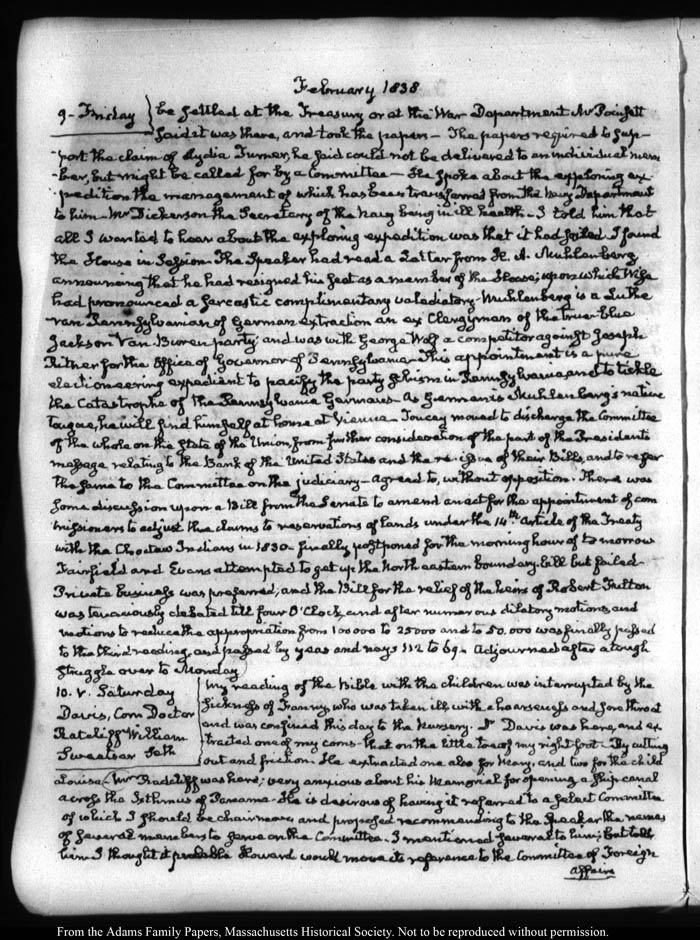 February 1838
9. Friday } be settled at the Treasury or at the War Department Mr Poinsett
said it was there, and took the papers — The papers required to sup-
-port the claim of Lydia Turner, he said could not be delivered to an individual mem-
ber, but might be called for by a Committee — He spoke about the exploring ex-
pedition the management of which has been transferred from the Navy Department
to him — Mr Dickerson the Secretary of the Navy being in ill health — I told him that
all I wanted to hear about the exploring expedition was that it had sailed I found
the House in Session. The Speaker had read a Letter from H. A. Muhlenberg
announcing that he had resigned his seat as a member of the House; upon which Wise
had pronounced a sarcastic complimentary valedictory. Muhlenberg is a Luthe
ran Pennsylvanian of German extraction an ex Clergyman of the true-blue
Jackson Van Buren party and was with George Wolf a competitor against Joseph
Ritner for the Office of Governor of Pennsylvania — This appointment is a pure
electioneering expedient to pacify the party schism in Pennsylvania, and to tickle
the Catastrophe of the Pennsylvania Germans — As German is Muhlenberg's native
tongue, he will find himself at home at Vienna — Toucey moved to discharge the Committee
of the whole on the State of the Union, from further consideration of the part of the Presidents
message relating to the Bank of the United States and the re-issue of their Bills, and to refer
the same to the Committee on the judiciary — agreed to, without opposition. There was
some discussion upon a Bill from the Senate to amend an act for the appointment of com
missioners to adjust the claims to reservations of lands under the 14th. Article of the Treaty
with the Choctaw Indians in 1830 — finally postponed for the morning hour of to morrow
Fairfield and Evans attempted to get up the North eastern boundary bill but failed —
Private business was preferred, and the Bill for the relief of the heirs of Robert Fulton
was tenaciously debated till four O'Clock, and after numerous dilatory motions, and
motions to reduce the appropriation from 100 000 to 25 000 and to 50.000 was finally passed
to the third reading, and passed by yeas and nays 112 to 69. Adjourned after a tough
struggle over to Monday
10. V. Saturday
Davis, Com Doctor
Ratcliff William
Sweatsar Seth
My reading of the Bible with the children was interrupted by the
sickness of Fanny, who was taken ill, with a hoarseness and sore throat
and was confined this day to the Nursery. Dr Davis was here, and ex
tracted one of my corns — that on the little toe of my right foot — By cutting
out and friction. He extracted one also for Mary, and two for the child
Louisa. Mr Radcliff was here; very anxious about his Memorial for opening a ship canal
across the Isthmus of Panama — He is desirous of having it referred to a select Committee
of which I should be chairman, and proposed recommending to the Speaker the names
of several members to serve on the Committee. I mentioned several to him; but told
him I thought it probable Howard would move its reference to the Committee of Foreign
Affairs
From the Adams Family Papers, Massachusetts Historical Society. Not to be reproduced without permission.